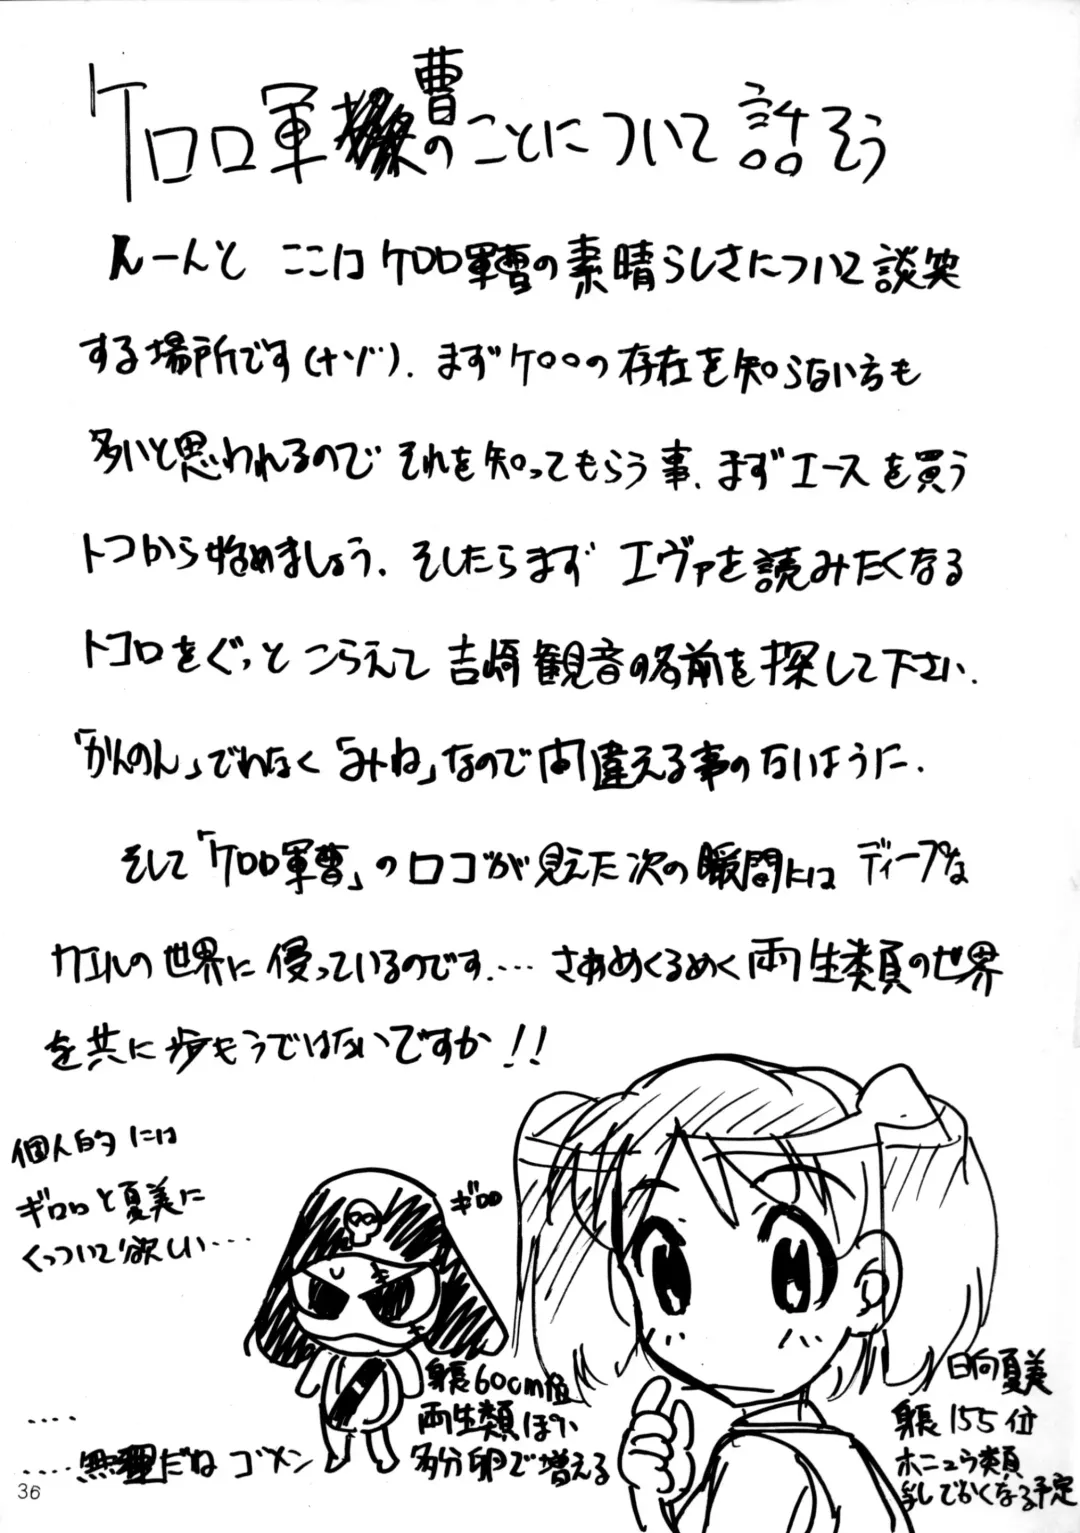 ケロロ軍曹のことについて話そう
んーんと ここはケロロ軍曹の素晴らしさについて談笑
する場所です(ナゾ). まずケロロの存在を知らない方も
多いと思われるので それを知ってもらう事. まずエースを買う
トコから始めましょう. そしたらまず エヴァを読みたくなる
トコロをぐっと こらえて 吉崎観音の名前を探して下さい.
「かんのん」でわなく「みね」なので間違える事のないように.
そして「ケロロ軍曹」のロゴが見えた次の瞬間には ディープな
カエルの世界に侵っているのです.… さああめくるめく両生類の世界
を共に歩もうではないですか!!
個人的には
ギロロと夏美に
くっついて欲しい…
ギロロ
身長60cm位
両生類ぽい
多分卵で増える
日向夏美
身長155位
ホニュウ類
乳しでかくなる予定
....
....無理だね ゴメン
36